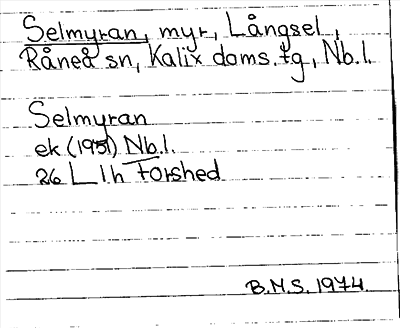 Selmyran, myr, Långsel,
Råneå sn, Kalix doms.tg, Nb.l.
Selmyran
ek (1951) Nb.l.
26 L l h Forshed
B.M.S. 1974.